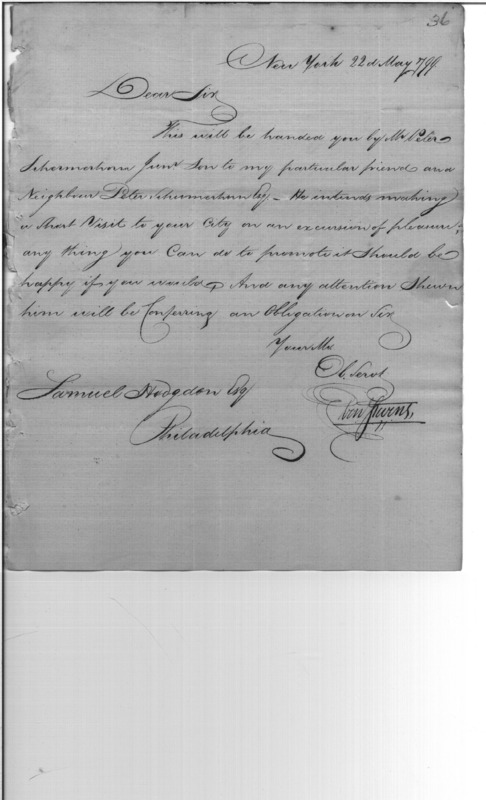 36
New York 22d May 1799.
Dear Sir
This will be handed you by Mr. Peter
Schermerhorn Junr. Son to my particular friend and
Neighbour Peter Schermerhorn Esq. - He intends making
a Short Visit to your City on an excursion of pleasure;
any thing you Can do to promote it Should be
happy if you would, And any attention Shewn
him will be Conferring an Obligation on Sir
Your Mo
Ob. Servt
Eben Stevens,
Samuel Hodgdon Esq
Philadelphia